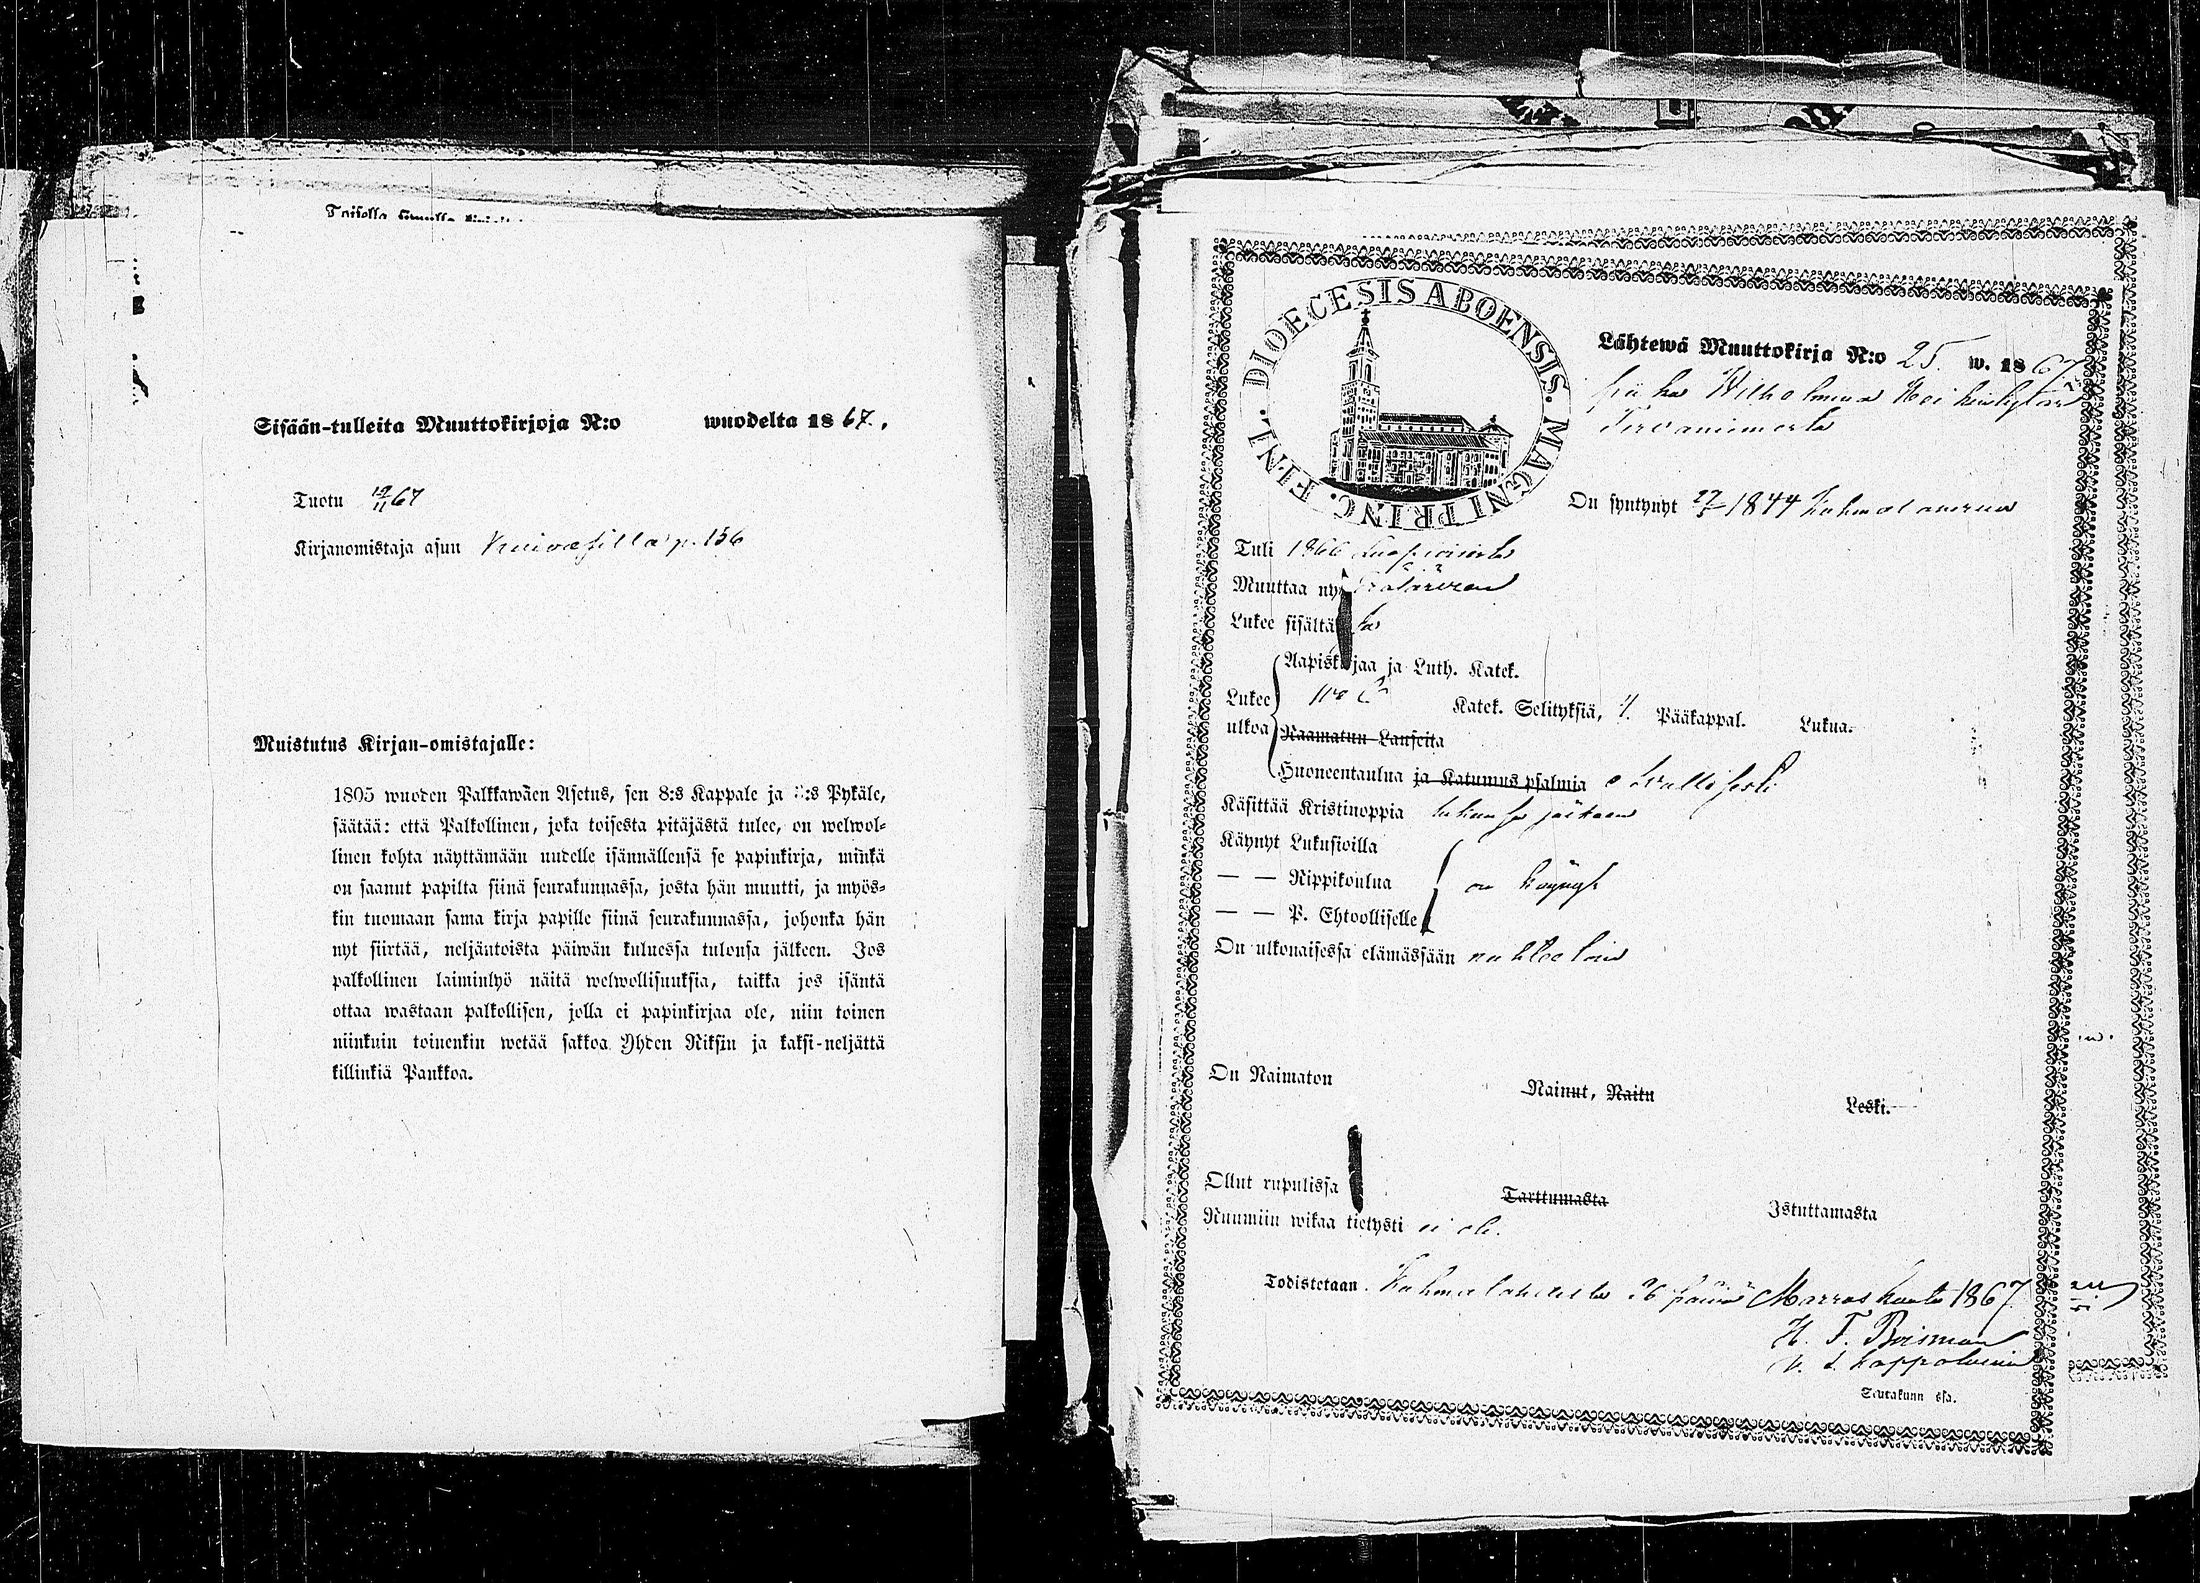 Toisella
Sisään-tulleita Muuttokirjoja N:o wuodelta 1867.
Tuotu 19/11 67
Kirjanomistaja asuu p. 156
Muistutus Kirjan-omistajalle:
1805 wuoden Palkkawäen Asetus, sen 8:s Kappale ja :s Pykäle,
säätää: että Palkollinen, joka toisesta pitäjästä tulee, on welwol-
linen kohta näyttämään uudelle isännällensä se papinkirja, minkä
on saanut papilta siinä seurakunnassa, josta hän muutti, ja myös-
kin tuomaan sama kirja papille siinä seurakunnassa, johonka hän
nyt siirtää, neljäntoista päiwän kuluessa tulonsa jälkeen. Jos
palkollinen laiminlyö näitä welwollisuuksia, taikka jos isäntä
ottaa wastaan palkollisen, jolla ei papinkirjaa ole, niin toinen
niinkuin toinenkin wetää sakkoa Yhden Riksin ja kaksi-neljättä
killinkiä Pankkoa.
DIOECESIS ABOENSIS. MAGNI PRINC. FINL.
Lähtewä Muuttokirja N:o 25. w. 1867
piika Wilhelmina Heikintytär
On syntynyt 27/ 1844 Kuhmalamma
Tuli 1866 Luopioisista
Muuttaa ny
Lukee sisältä
Aapiskirjaa ja Luth. Katek.
Lukee ulkoa
Katek. Selityksiä, Pääkappal. Lukua.
Raamatun Lauseita
Huoneentaulua ja Katumus psalmia
Käsittää Kristinoppia lukunsa jälkeen
Käynyt Lukusioilla
— — Rippikoulua on käynyt
— — P. Ehtoolliselle
On ulkonaisessa elämässään nuhteetoin
On Naimaton Nainut, Naitu Leski.
Ollut rupulissa Tarttumasta Istuttamasta
Ruumiin wikaa tietysti ei ole.
Todistetaan. Kuhmalahdesta 26 päivä Marras kuuta 1867.
H. F. Boisman
v. t. kappalainen
Seurakunn ssa.